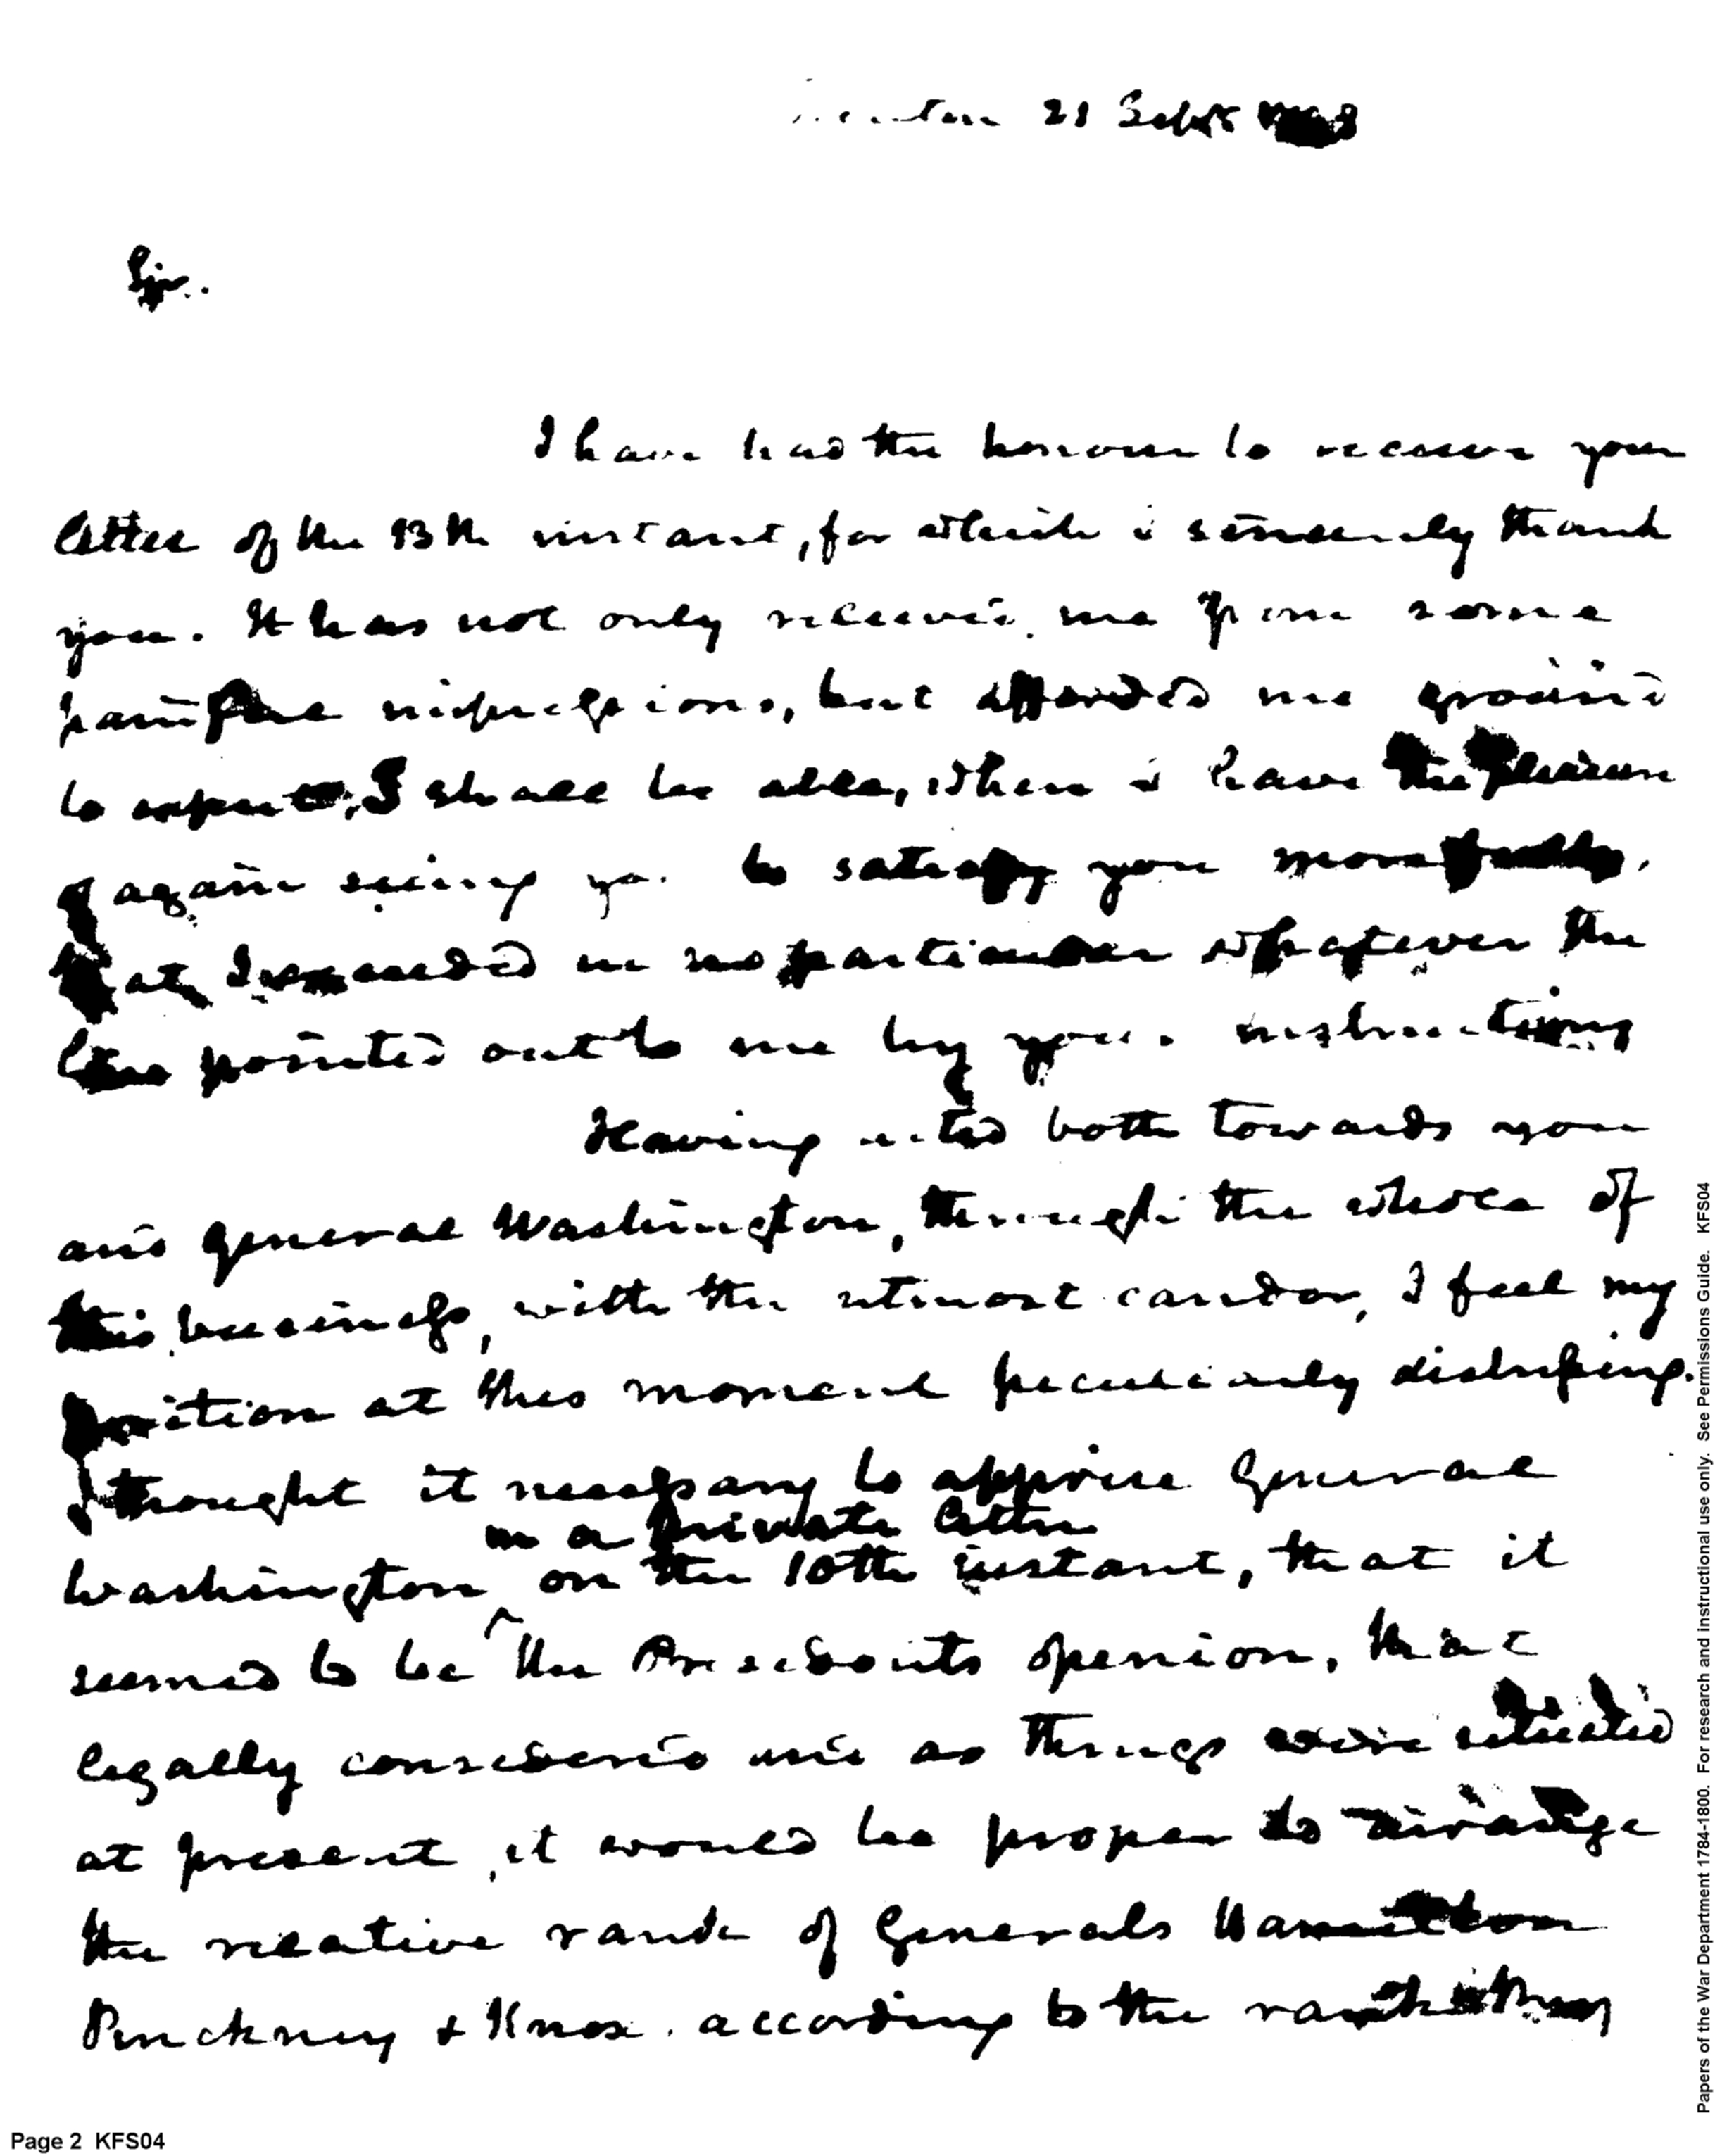 21 Sept 1798
Sir.
I have had the honour to receive your
letter of the 13th instant, for which i sincerely thank
you. It has not only relieved me from some
painful reflections, but affords me ground
to expect, I shall be able, when i have the pleasure
of again seeing you to satisfy you more fully,
that I exceeded in no particular whatever the
line pointed out to me by your instructions
Having acted both towards you
and general Washington, through the whole of
this business, with the utmost candor, I feel my
position at this moment peculiarly distressing.
I thought it necessary to apprise General
in a private letter
Washington on the 10th instant, that it
seemed to be the Presidents openion, that
legally considered and as things were situated
at present, it would be proper to arrange
the relative rank of Generals Hamilton
Pinckney & Knox. according to the rank they
Papers of the War Department 1784-1800. For research and instructional use only. See Permissions Guide. KFS04
Page 2 KFS04